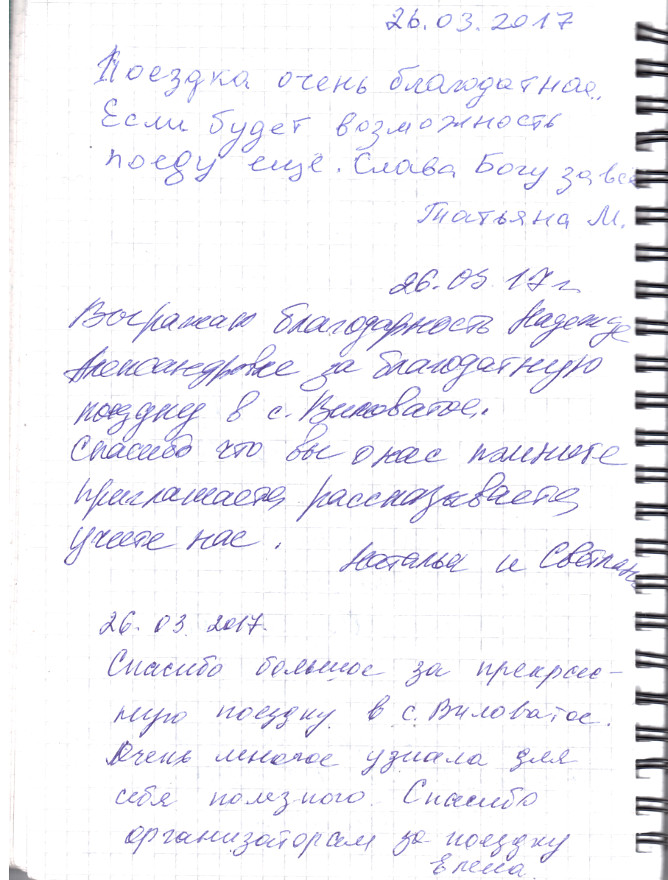 26.03.2017
Поездка очень благодатная.
Если будет возможность
поеду ещё. Слава Богу за всё
Татьяна М.
26.03 17 г.
Выражаю благодарность Надежде
Александровне за благодатную
поездку в с. Виловатое.
Спасибо что вы о нас помните
приглашаете, рассказываете,
учите нас.
Наталья и Светлана
26. 03. 2017.
Спасибо большое за прекрас-
ную поездку в с. Виловатое.
Очень многое узнала для
себя полезного. Спасибо
организаторам за поездку
Елена.